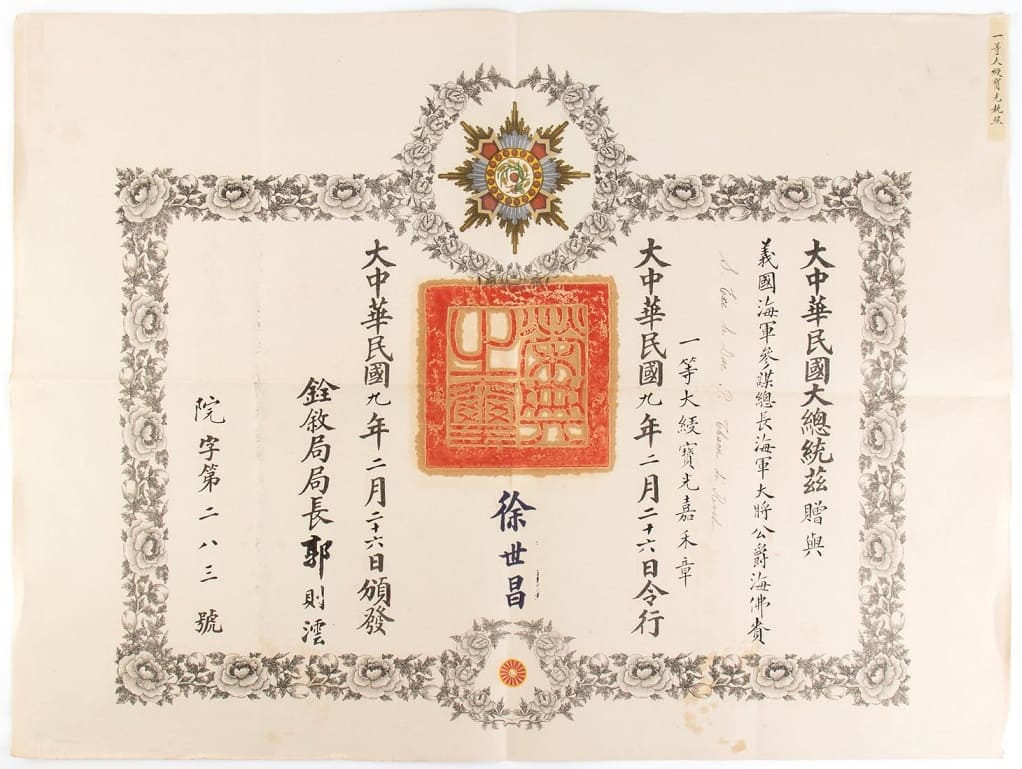 一等大綬寶光執照
大中華民國大總統茲贈與
義國海軍參謀總長海軍大將公爵海佛賚
Duca Thaon di Revel
一等大綬寶光嘉禾章
大中華民國九年二月二十六日令行
榮典之璽
徐世昌
大中華民國九年二月二十六日頒發
銓敘局局長郭則澐
院字第二八三號